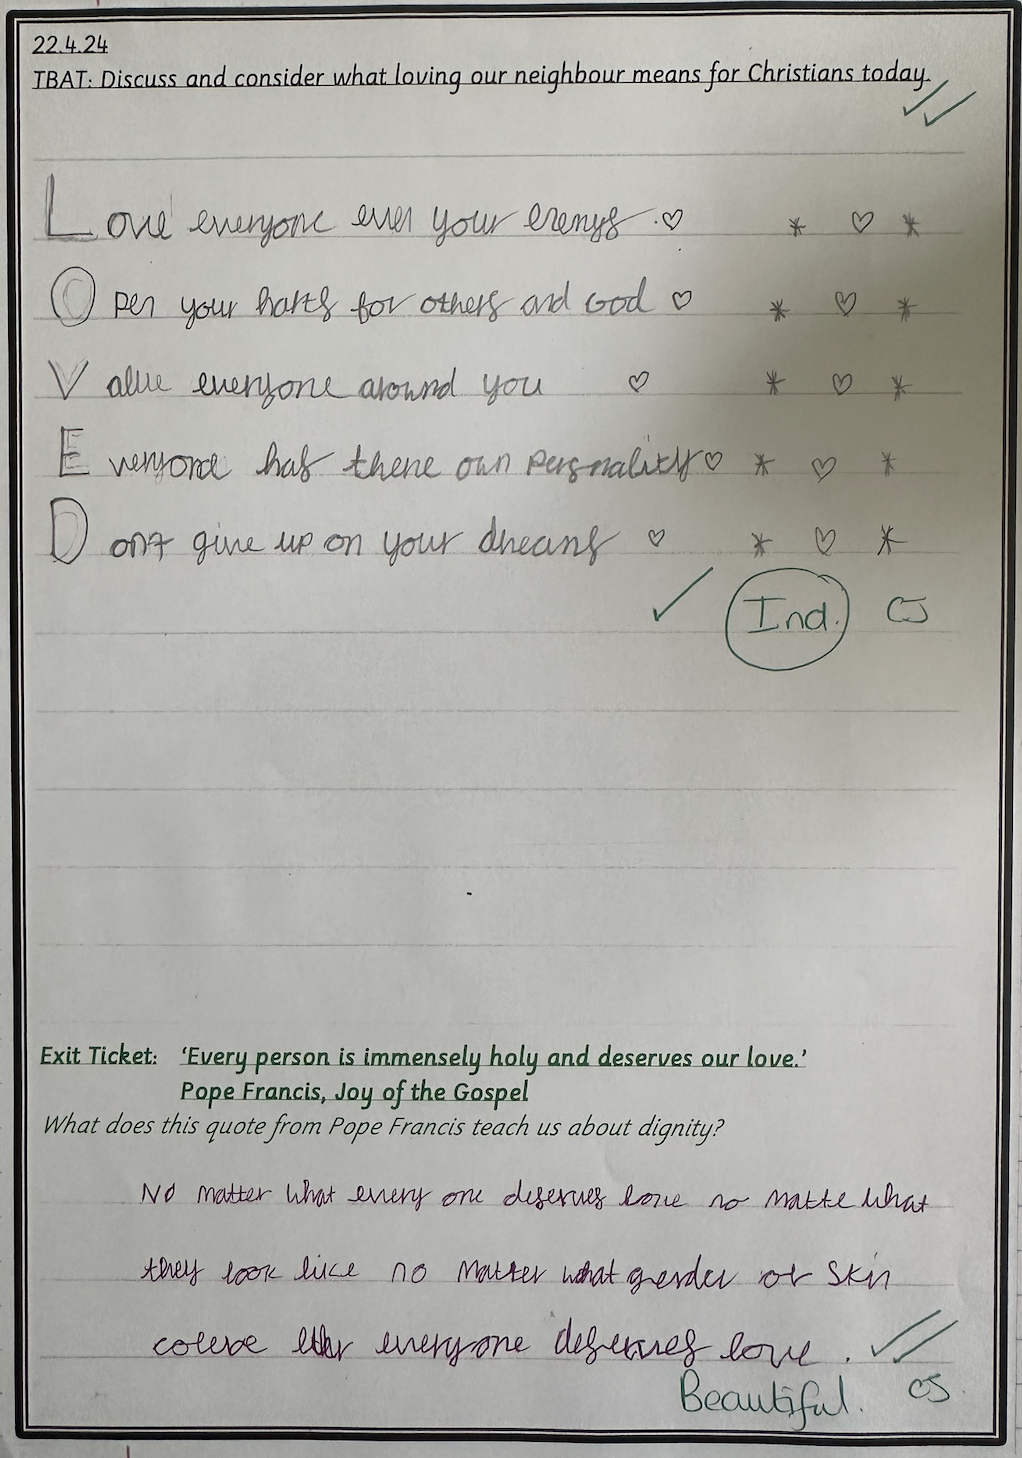 22.4.24
TBAT: Discuss and consider what loving our neighbour means for Christians today.
Love everyone even your enemys.
Open your harts for others and God
Value everyone around you
Everyone has there own personality
Don't give up on your dreams
Ind. CJ
Exit Ticket: 'Every person is immensely holy and deserves our love.'
Pope Francis, Joy of the Gospel
What does this quote from Pope Francis teach us about dignity?
No matter what every one deserves love no matte what
they look like no matter what gender or skin
everyone deserves love.
Beautiful. CJ